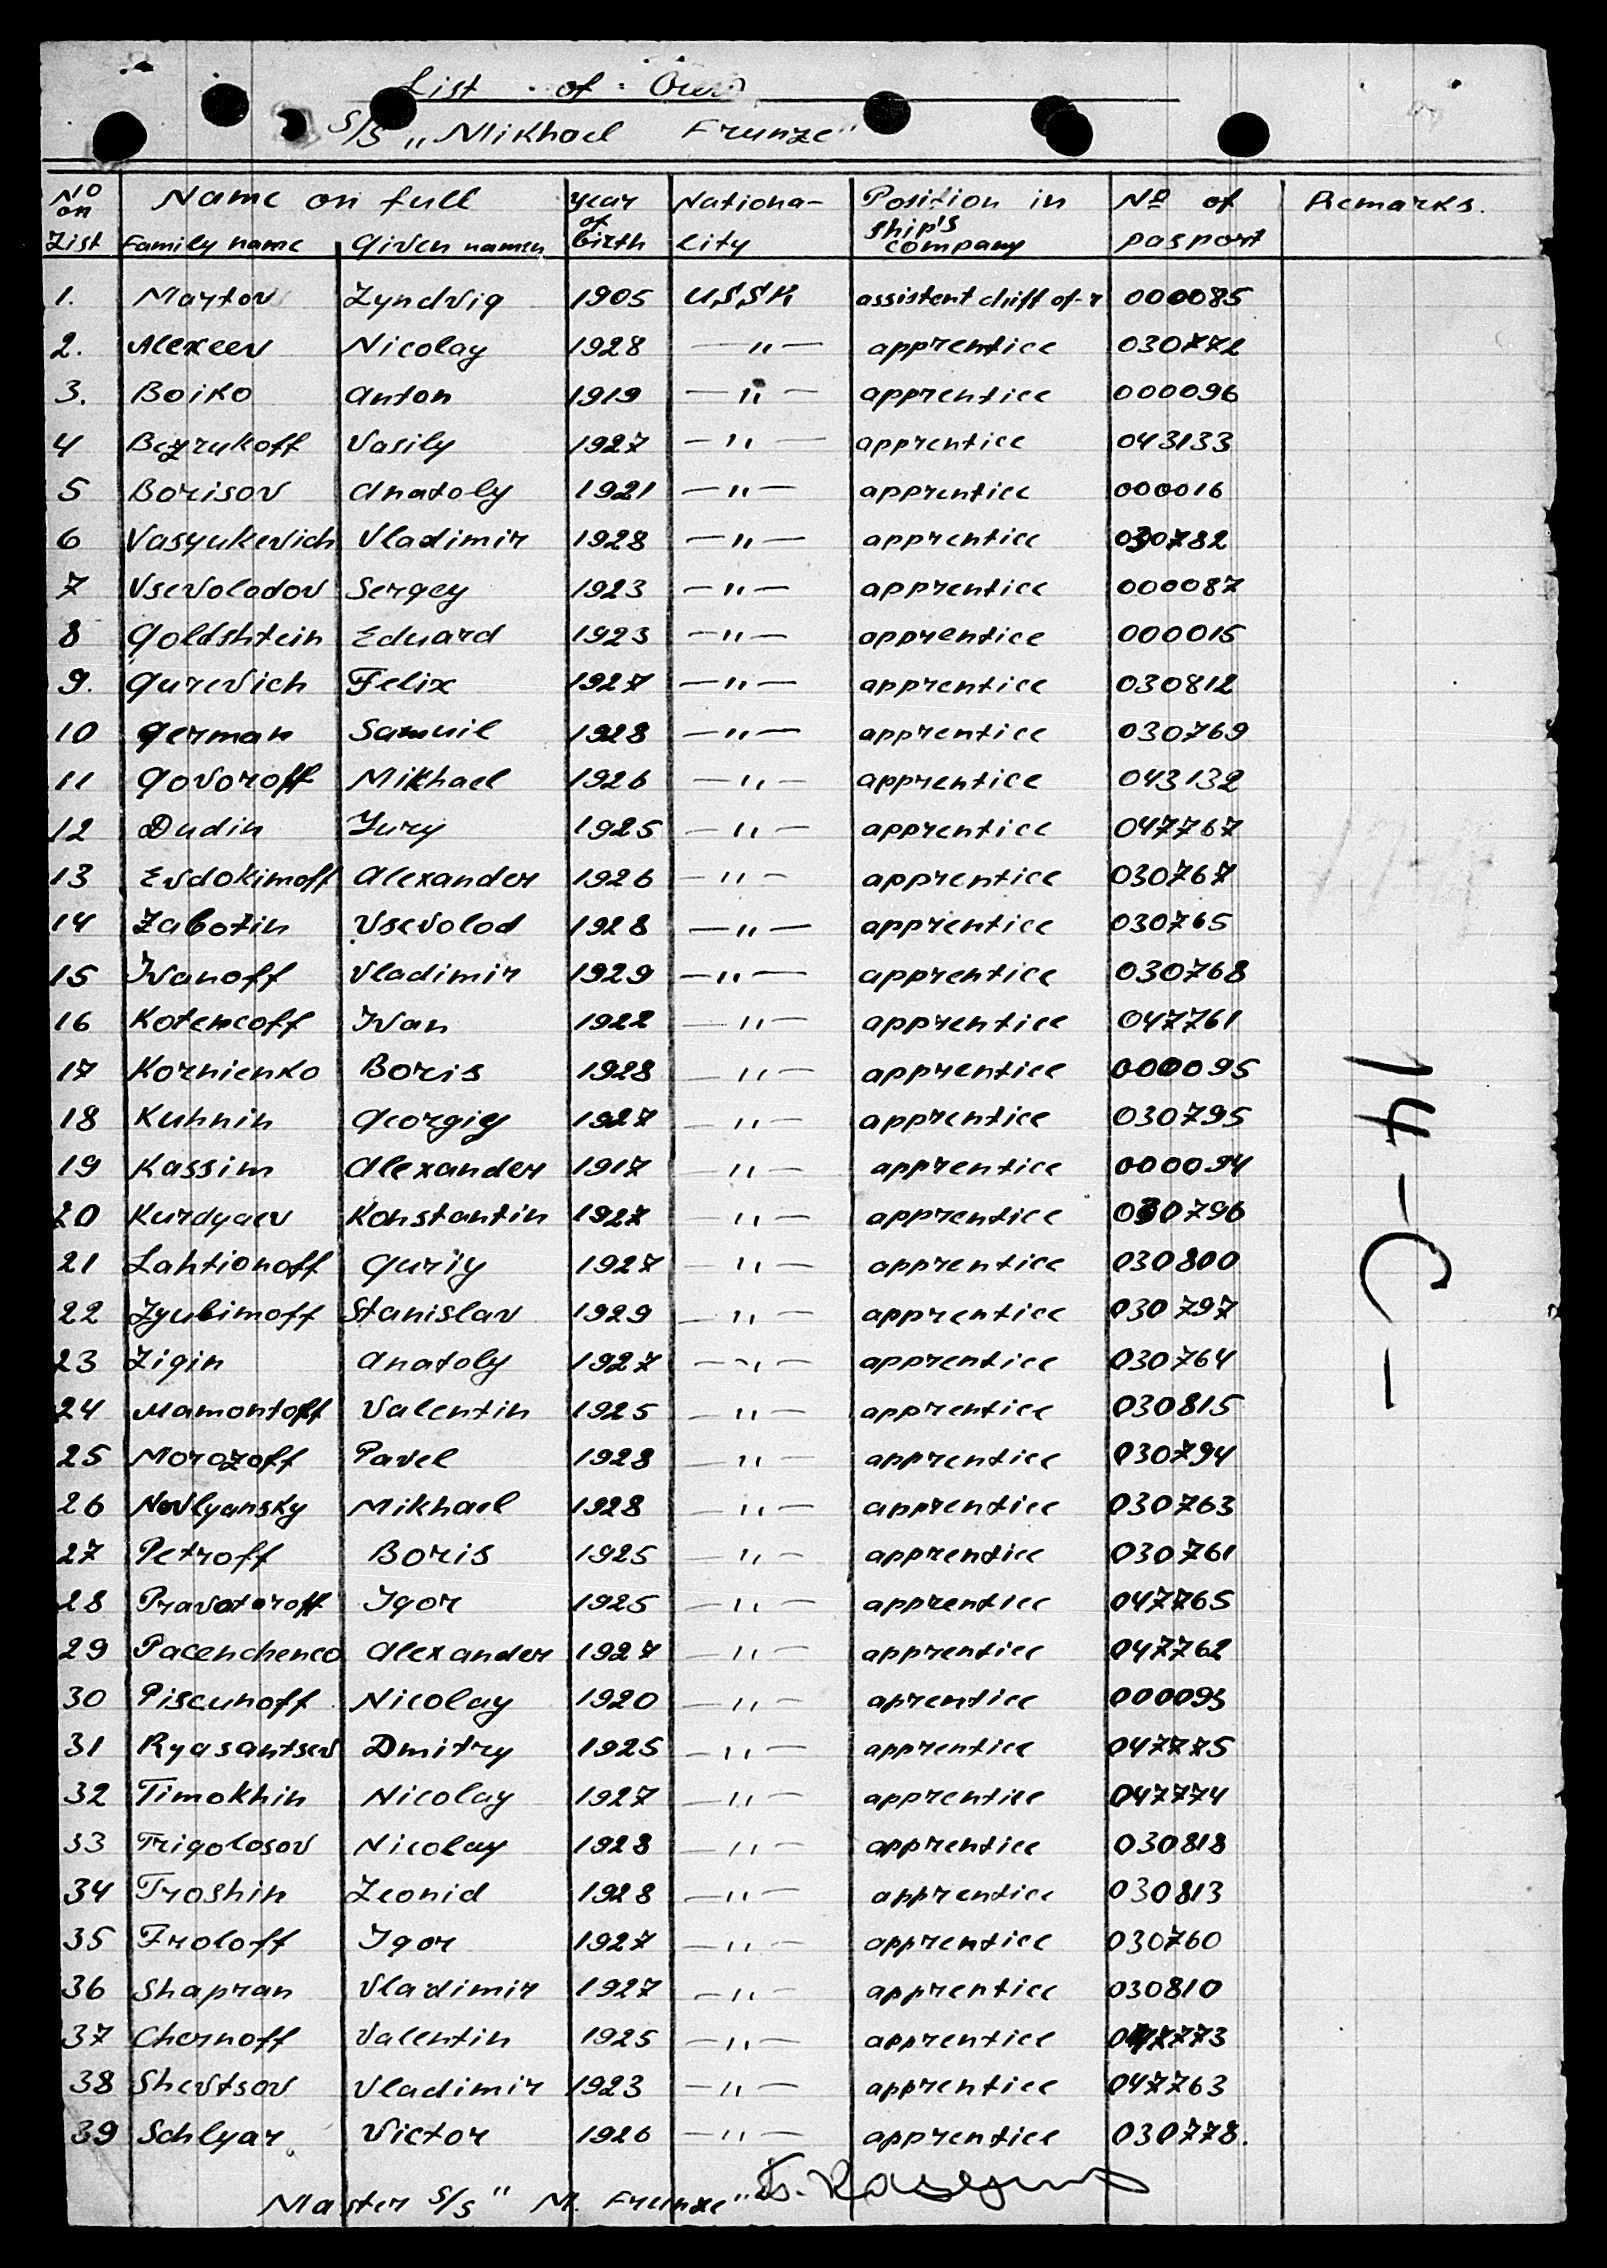 List of Crew
S/S „Mikhael Frunze"
No on List | Name on full | Year of birth | Nationa-lity | Position in ship's company | No of pasport | Remarks.
Family name | Given namen
1. Martov Lyndvig 1905 USSR assistent chiff of-r 000085
2. Alexeev Nicolay 1928 —„— apprentice 030772
3. Boiko Anton 1919 —„— apprentice 000096
4 Bezrukoff Vasily 1927 —„— apprentice 043133
5 Borisov Anatoly 1921 —„— apprentice 000016
6 Vasyukevich Vladimir 1928 —„— apprentice 030782
7 Vsevolodov Sergey 1923 —„— apprentice 000087
8 Goldshtein Eduard 1923 —„— apprentice 000015
9. Gurevich Felix 1927 —„— apprentice 030812
10 German Samuil 1928 —„— apprentice 030769
11 Govoroff Mikhael 1926 —„— apprentice 043132
12 Dudin Yury 1925 —„— apprentice 047767
13 Evdokimoff Alexander 1926 —„— apprentice 030767
14 Zabotin Vsevolod 1928 —„— apprentice 030765
15 Ivanoff Vladimir 1929 —„— apprentice 030768
16 Kotencoff Ivan 1922 —„— apprentice 047761
17 Kornienko Boris 1928 —„— apprentice 000095
18 Kuhnin Georgiy 1927 —„— apprentice 030795
19 Kassim Alexander 1917 —„— apprentice 000094
20 Kurdyaev Konstantin 1927 —„— apprentice 030796
21 Lahtionoff Guriy 1927 —„— apprentice 030800
22 Lyubimoff Stanislav 1929 —„— apprentice 030797
23 Ligin Anatoly 1927 —„— apprentice 030764
24 Mamontoff Valentin 1925 —„— apprentice 030815
25 Morozoff Pavel 1928 —„— apprentice 030794
26 Nevlyansky Mikhael 1928 —„— apprentice 030763
27 Petroff Boris 1925 —„— apprentice 030761
28 Pravotoroff Igor 1925 —„— apprentice 047765
29 Pacenchenco Alexander 1927 —„— apprentice 047762
30 Piscunoff Nicolay 1920 —„— aprentice 000093
31 Ryasantsev Dmitry 1925 —„— apprentice 047775
32 Timokhin Nicolay 1927 —„— apprentice 047774
33 Trigolosov Nicolay 1928 —„— apprentice 030818
34 Troshin Leonid 1928 —„— apprentice 030813
35 Froloff Igor 1927 —„— apprentice 030760
36 Shapran Vladimir 1927 —„— apprentice 030810
37 Chernoff Valentin 1925 —„— apprentice 047773
38 Shevtsov Vladimir 1923 —„— apprentice 047763
39 Schlyar Victor 1926 —„— apprentice 030778.
Master S/S "M. Frunze"
14-C-